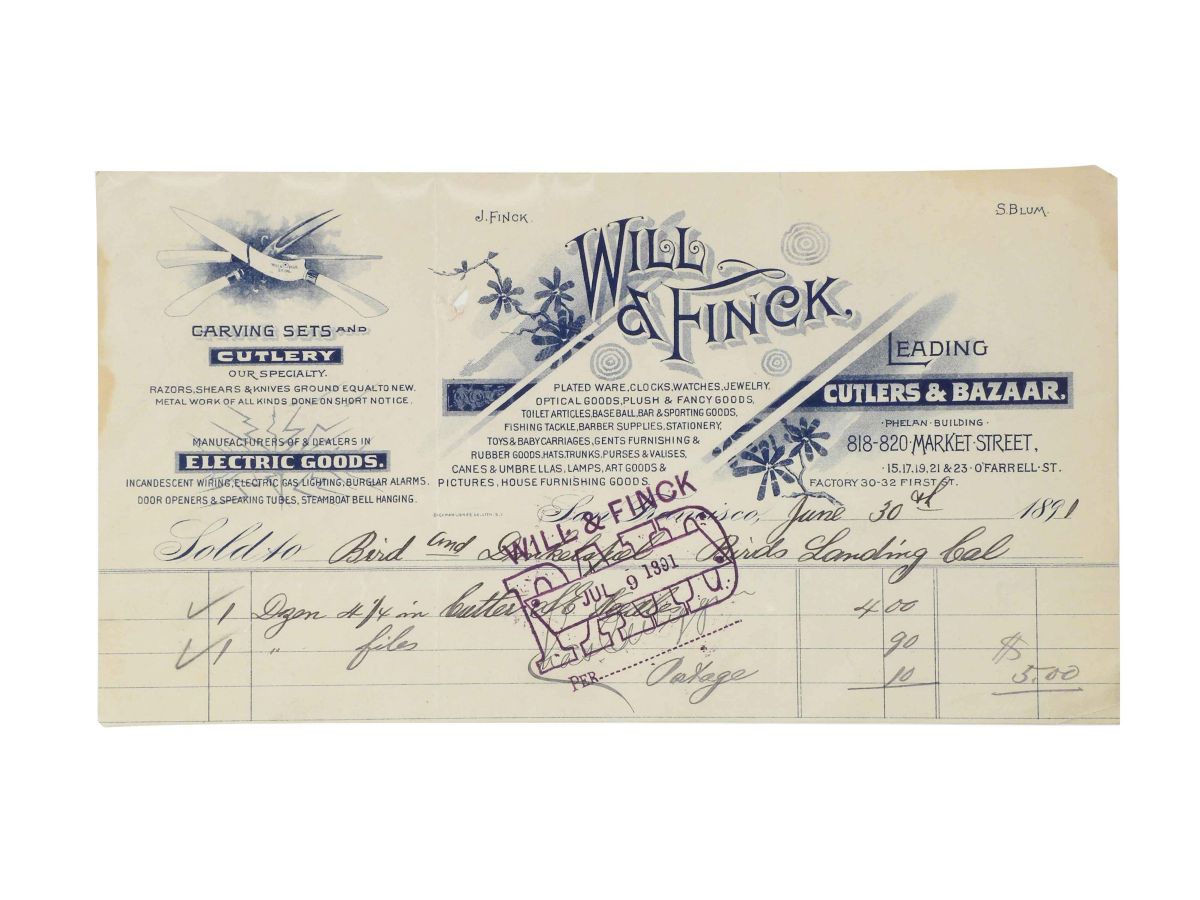 J. FINCK.
S. BLUM.
WILL & FINCK.
CARVING SETS AND
CUTLERY
OUR SPECIALTY.
RAZORS, SHEARS & KNIVES GROUND EQUAL TO NEW.
METAL WORK OF ALL KINDS DONE ON SHORT NOTICE.
MANUFACTURERS OF & DEALERS IN
ELECTRIC GOODS.
INCANDESCENT WIRING, ELECTRIC GAS LIGHTING, BURGLAR ALARMS.
DOOR OPENERS & SPEAKING TUBES, STEAMBOAT BELL HANGING.
PLATED WARE, CLOCKS, WATCHES, JEWELRY.
OPTICAL GOODS, PLUSH & FANCY GOODS,
TOILET ARTICLES, BASE BALL, BAR & SPORTING GOODS,
FISHING TACKLE, BARBER SUPPLIES, STATIONERY,
TOYS & BABY CARRIAGES, GENTS FURNISHING &
RUBBER GOODS, HATS, TRUNKS, PURSES & VALISES,
CANES & UMBRELLAS, LAMPS, ART GOODS &
PICTURES, HOUSE FURNISHING GOODS.
LEADING
CUTLERS & BAZAAR.
PHELAN BUILDING
818-820 MARKET STREET,
15, 17, 19, 21 & 23 O'FARRELL ST.
FACTORY 30-32 FIRST ST.
San Francisco, June 30th 1891
Sold to Bird and Birds Landing Cal
1 Dzen 4 1/4 in 4 00
1 " files 90
Postage 10 $ 5.00
WILL & FINCK
PAID
JUL 9 1891
PER